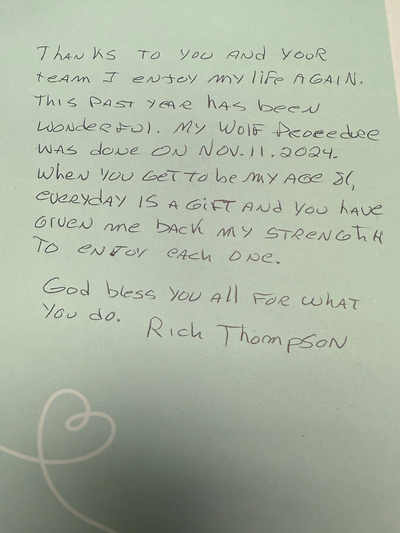 Thanks to you and your
team I enjoy my life again.
This past year has been
wonderful. My Wolf Procedure
was done on Nov. 11, 2024.
When you get to be my age 81,
everyday is a gift and you have
given me back my strength
to enjoy each one.
God bless you all for what
you do.
Rich Thompson